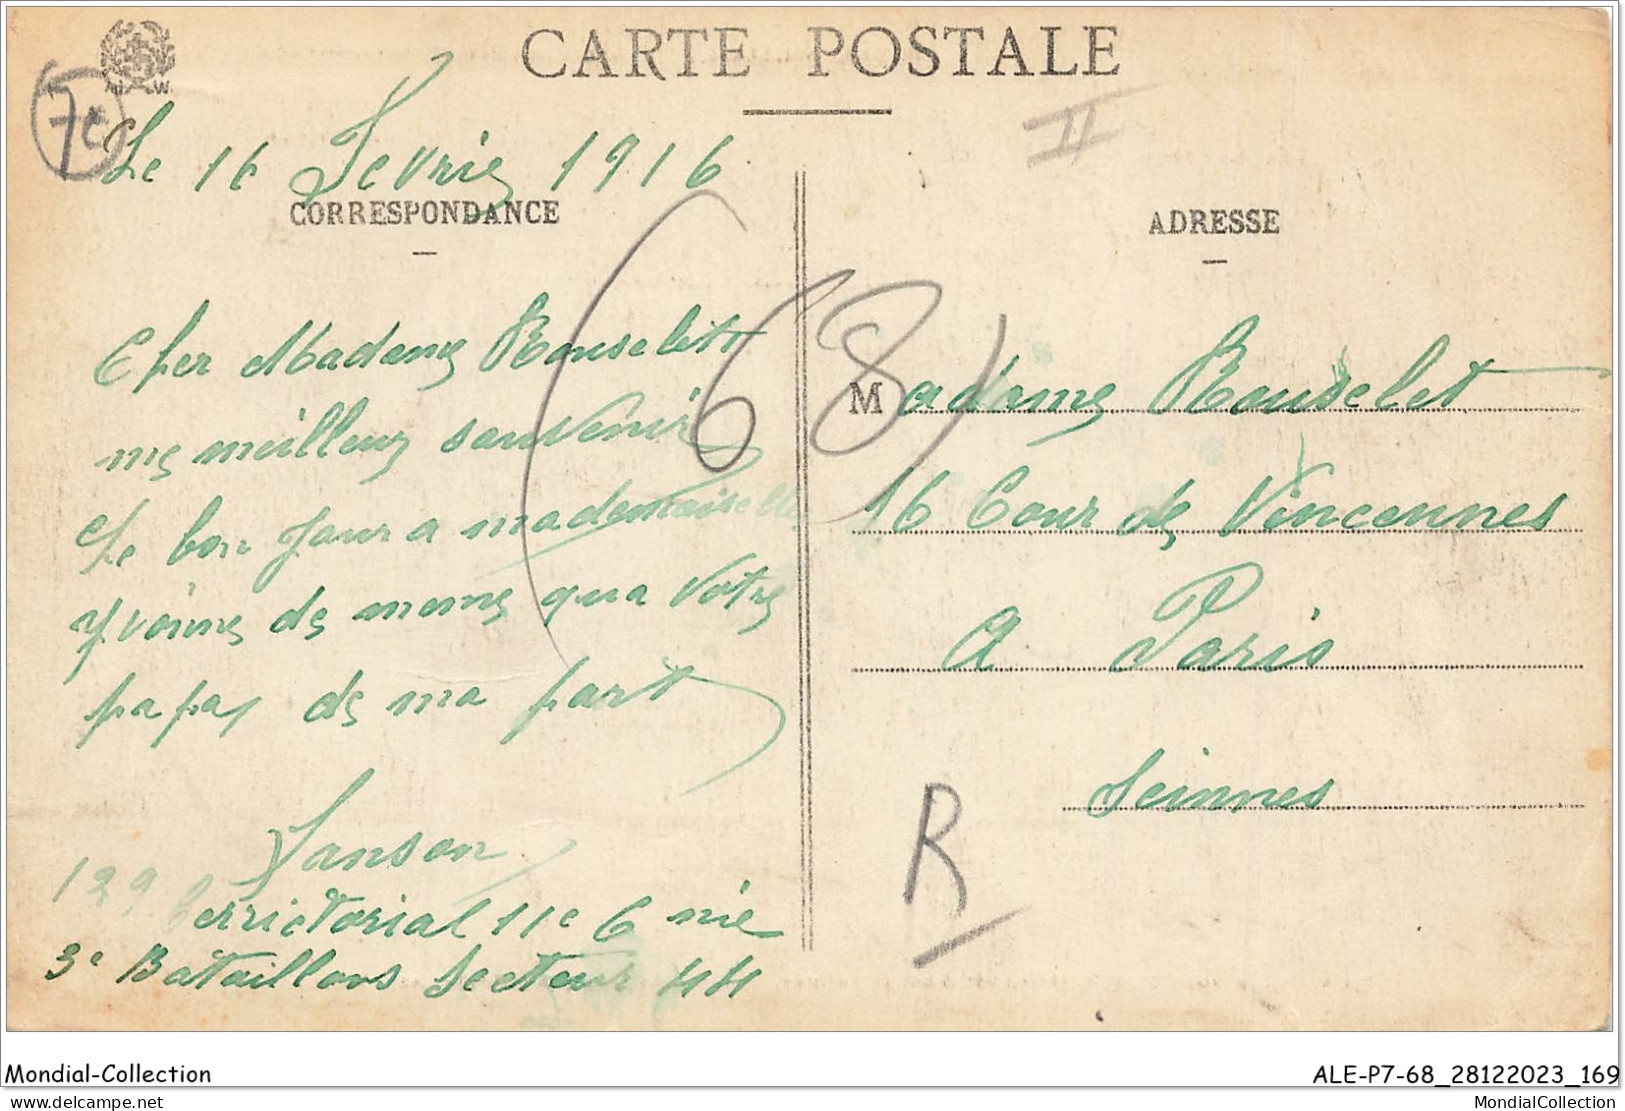 CARTE POSTALE
W.
7e
II
Le 16 Fevrie 1916
CORRESPONDANCE
Cher Madame Rouselett
me meilleur souvenir
Le bon jour a mademaiselle
Yvoinne de meme qua votre
papa, de ma part
Sanson
129 Terrictorial 11e C nie
3e Bataillons Secteur 44
(68)
ADRESSE
Madame Rouselet
16 Cour de Vincennes
A Paris
Seinnes
R
Mondial-Collection
ALE-P7-68_28122023_169
delcampe.net
MondialCollection